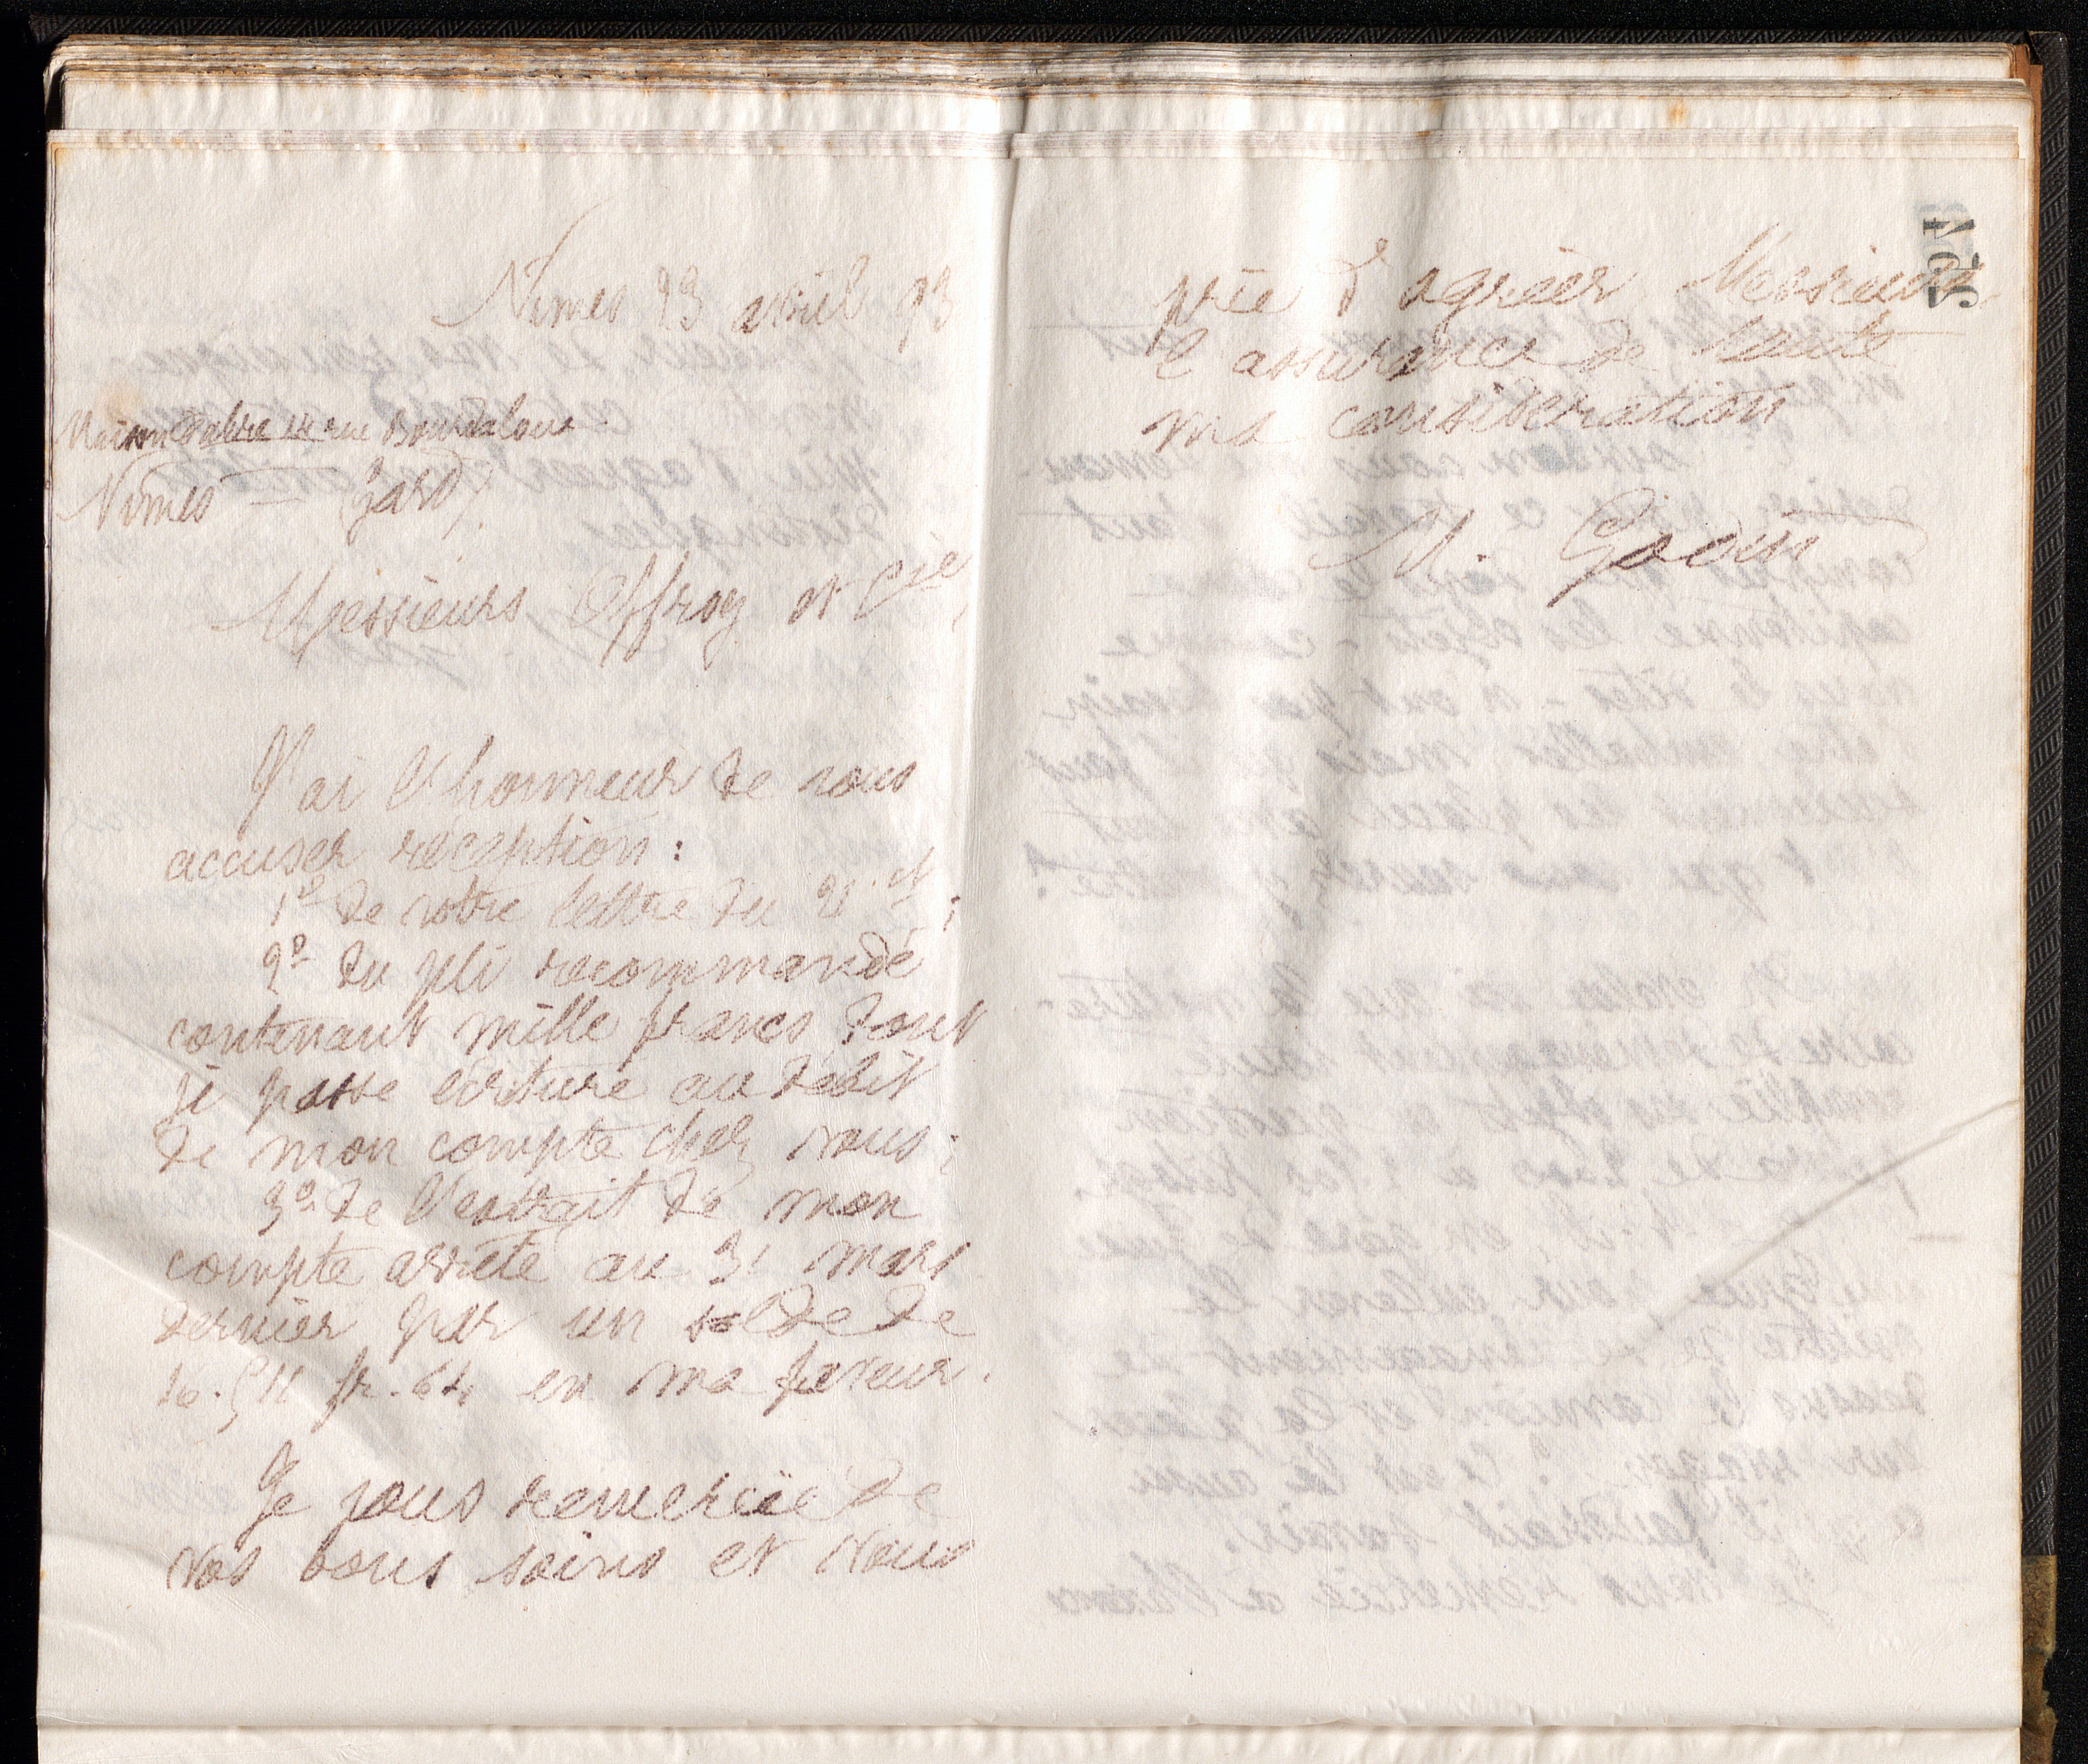 Nimes 23 avril 93
Maison Fabre 14 rue Bourdaloue
Nimes – (Gard).
Messieurs Offroy et Cie,
J'ai l'honneur de vous
accuser réception:
1º de votre lettre du 21 ct;
2º du pli recommandé
contenant mille francs dont
je passe écriture au débit
de mon compte chez vous;
3º de l'extrait de mon
compte arrêté au 31 mars
dernier par un solde de
16.511 fr. 64 en ma faveur.
Je vous remercie de
vos bons soins et vous
prie d'agréer Messieurs
l'assurance de toute
ma considération
M. Godin